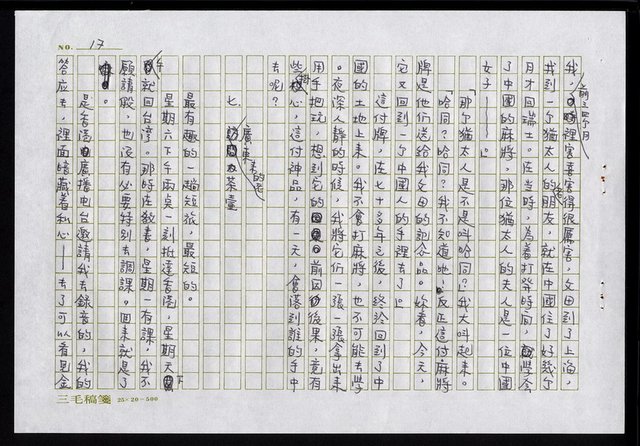 NO. 17
我，前三個月
裡害喜害得很厲害，丈夫到了上海，
找到一個猶太人的朋友，就在中國住了好幾個
月才回瑞士。在當時，為着打發時間，學会
了中國的麻將，那位猶太人的夫人是一位中國
女子——。」
「那個猶太人是不是叫哈同？」我大叫起來。
「哈同？哈同？我不知道地！反正這付麻將
牌是他們送給我丈夫的記念品。妳看，今天，
它又回到一個中國人的手裡去了。」
這付牌，在七十多年之後，終於回到了中
國的土地上來。我不會打麻將，也不可能去學
。夜深人靜的時候，我將它們一張一張拿出來
用手把玩，想到它的前因後果，竟有
些掛心，這付神品，有一天，會落到誰的手中
去呢？
七、廣東來的老茶壺
最有趣的一趟旅，最短的。
星期六下午兩點一刻抵達香港，星期天下
午就回台灣。那時在教書，星期一有課，我不
願請假，也没有必要特别去調課。回來就是了
。
是香港廣播电台邀請我去錄音的，我的
答应去，裡面暗藏着私心——去了可以看見金
三毛稿箋 25×20＝500